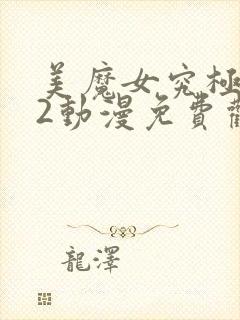 美魔女究極
2動漫免費
龍澤